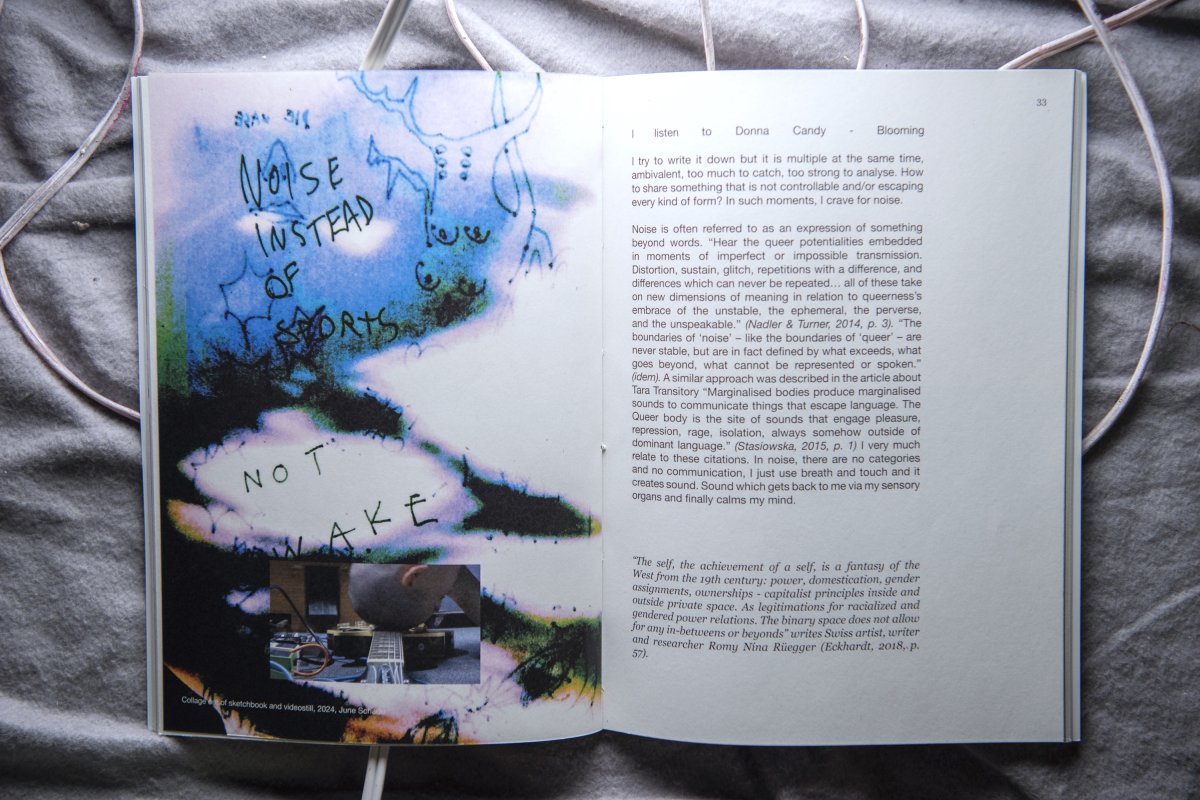 NOISE
INSTEAD
OF
SPORTS
NOT
WAKE
Collage of sketchbook and videostill, 2024, June
33
I listen to Donna Candy - Blooming
I try to write it down but it is multiple at the same time,
ambivalent, too much to catch, too strong to analyse. How
to share something that is not controllable and/or escaping
every kind of form? In such moments, I crave for noise.
Noise is often referred to as an expression of something
beyond words. “Hear the queer potentialities embedded
in moments of imperfect or impossible transmission.
Distortion, sustain, glitch, repetitions with a difference, and
differences which can never be repeated… all of these take
on new dimensions of meaning in relation to queerness’s
embrace of the unstable, the ephemeral, the perverse,
and the unspeakable.” (Nadler & Turner, 2014, p. 3). “The
boundaries of ‘noise’ – like the boundaries of ‘queer’ – are
never stable, but are in fact defined by what exceeds, what
goes beyond, what cannot be represented or spoken.”
(idem). A similar approach was described in the article about
Tara Transitory “Marginalised bodies produce marginalised
sounds to communicate things that escape language. The
Queer body is the site of sounds that engage pleasure,
repression, rage, isolation, always somehow outside of
dominant language.” (Stasiowska, 2015, p. 1) I very much
relate to these citations. In noise, there are no categories
and no communication, I just use breath and touch and it
creates sound. Sound which gets back to me via my sensory
organs and finally calms my mind.
“The self, the achievement of a self, is a fantasy of the
West from the 19th century: power, domestication, gender
assignments, ownerships - capitalist principles inside and
outside private space. As legitimations for racialized and
gendered power relations. The binary space does not allow
for any in-betweens or beyonds” writes Swiss artist, writer
and researcher Romy Nina Rüegger (Eckhardt, 2018, p.
57).